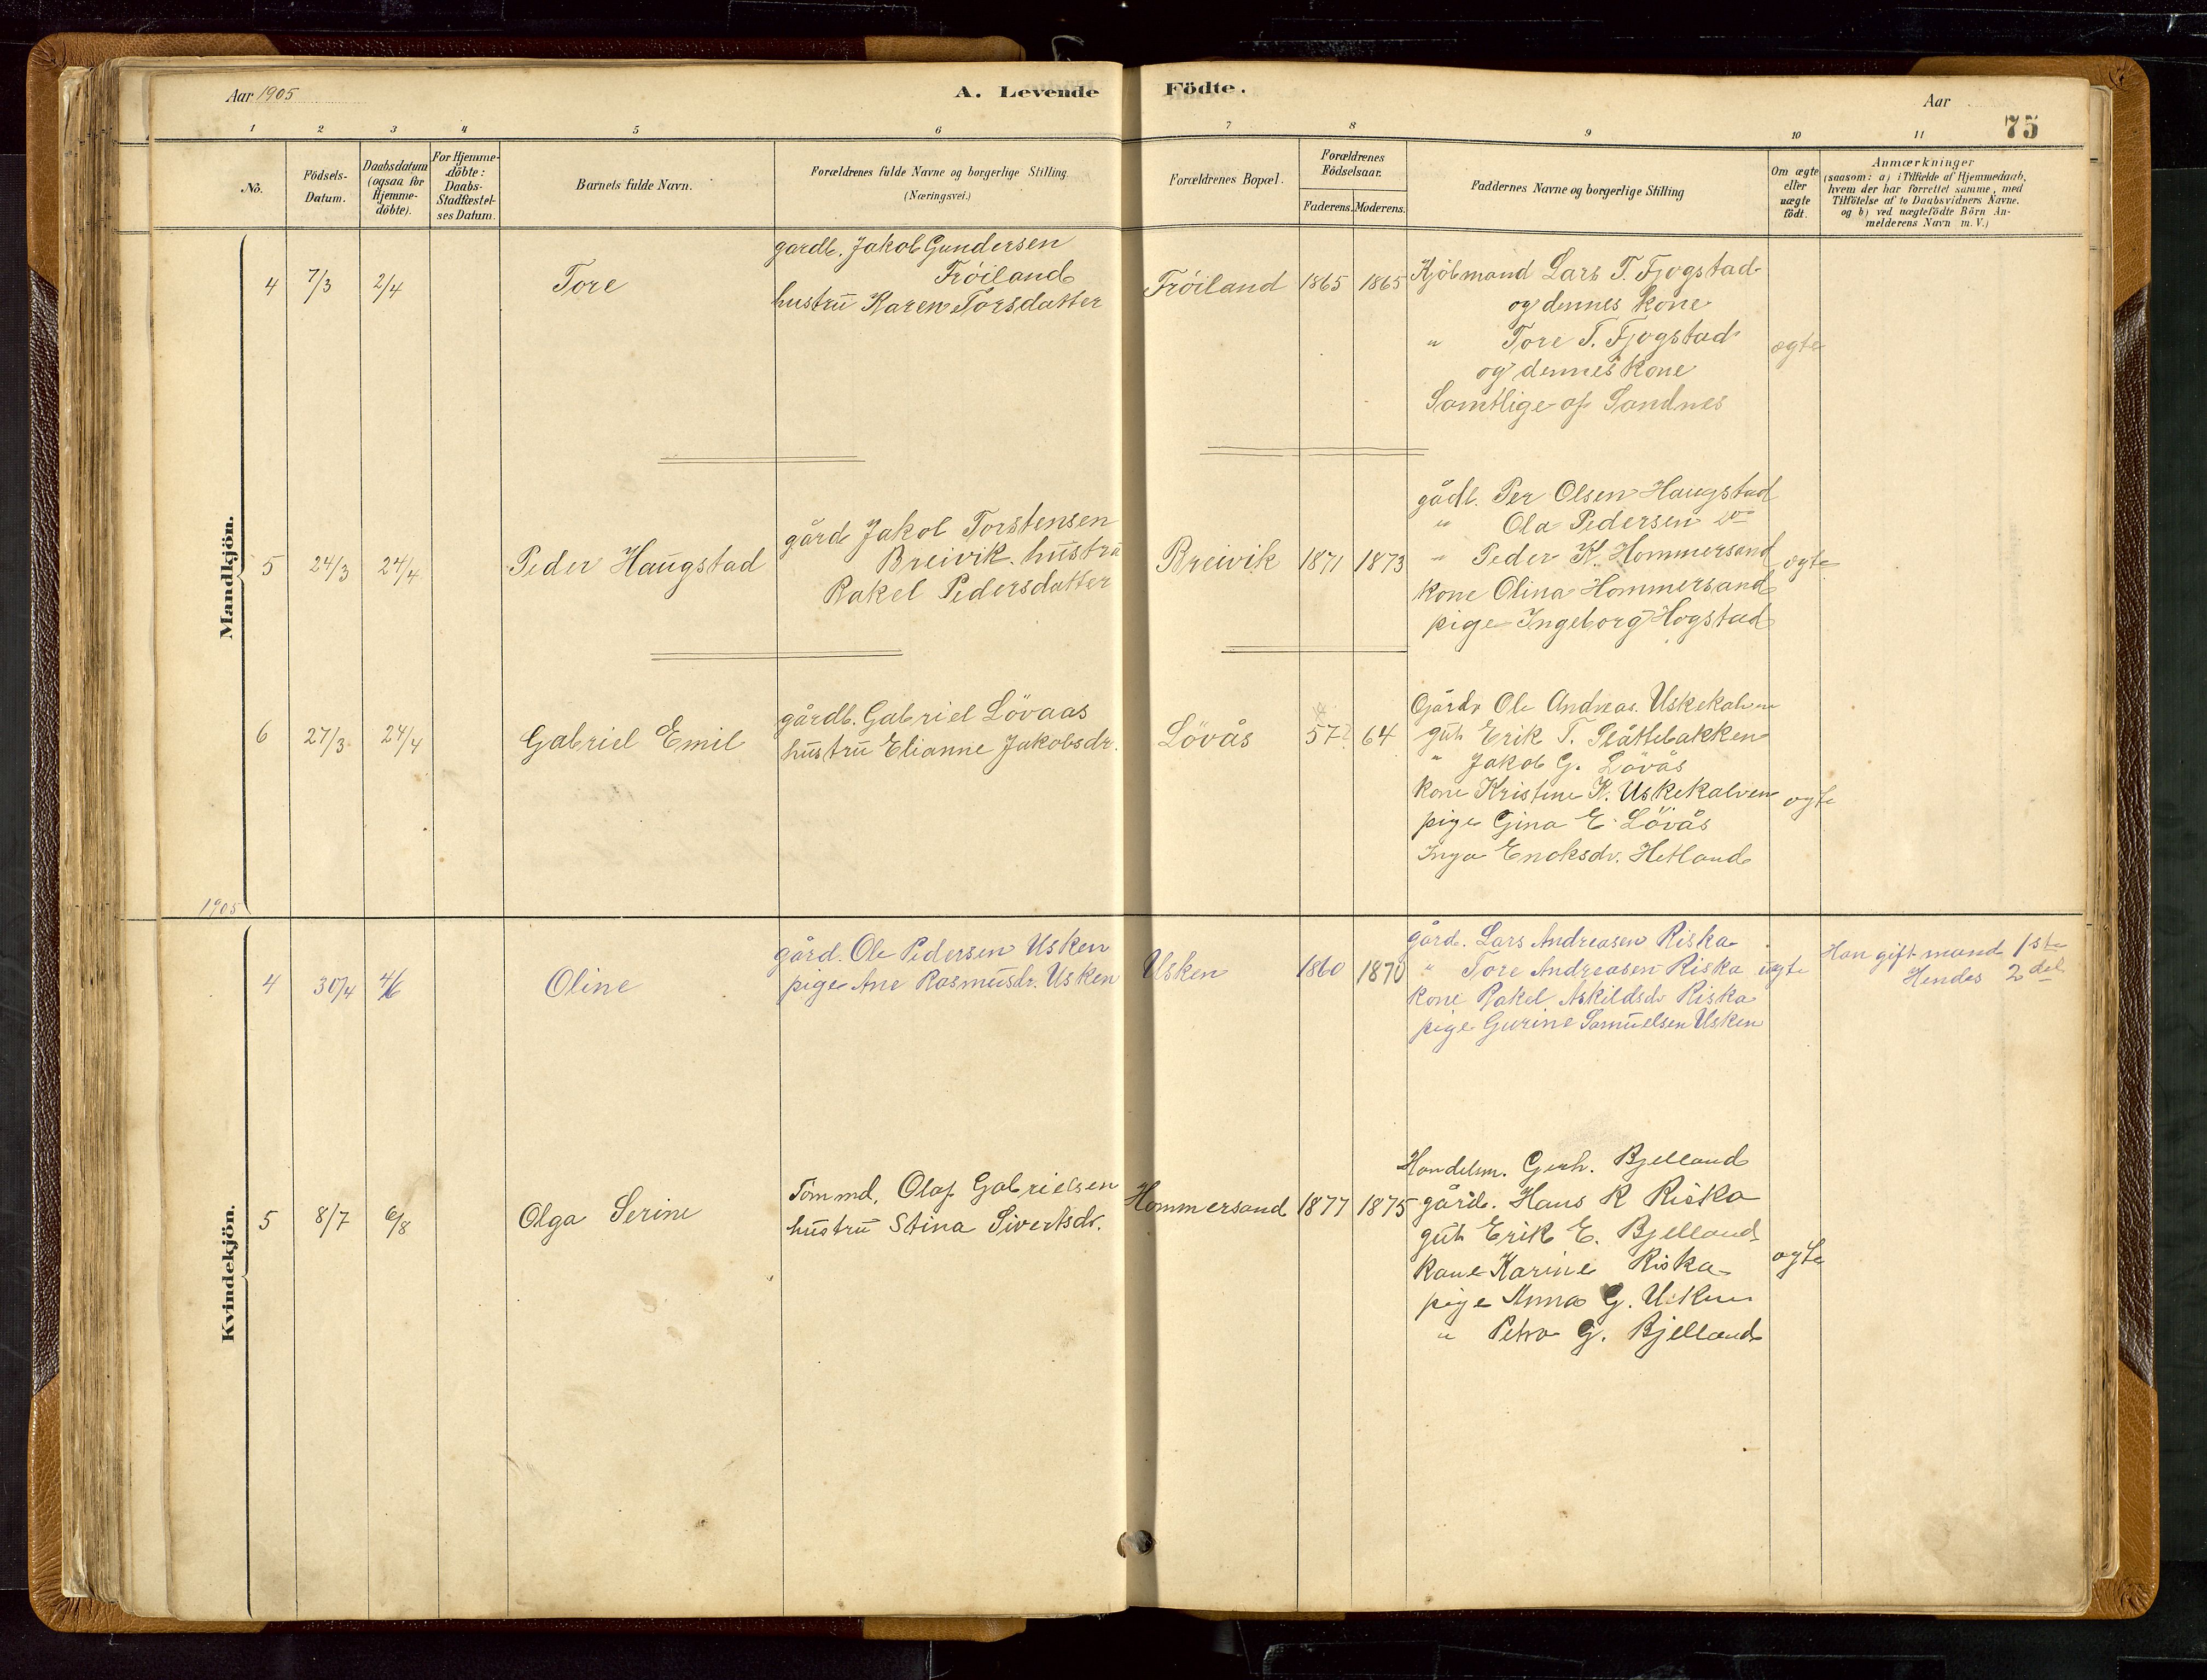 Aar 1905
A. Levende
Födte.
Aar
75
1 2 3 4 5 6 7 8 9 10 11
No.
Födsels-
Datum.
Daabsdatum
(ogsaa for
Hjemme-
döbte).
For Hjemme-
döbte:
Daabs-
Stadfæstel-
ses Datum.
Barnets fulde Navn.
Forældrenes fulde Navne og borgerlige Stilling
(Næringsvei.)
Forældrenes Bopæl.
Forældrenes
Födselsaar.
Faderens. Moderens.
Faddernes Navne og borgerlige Stilling
Om ægte
eller
uægte
födt.
Anmærkninger
(saasom: a) i Tilfælde af Hjemmedaab,
hvem der har forrettet samme, med
Tilföielse af to Daabsvidners Navne.
og b) ved uægtefödte Börn An-
melderens Navn m. V.)
Mandkjön.
4 7/3 2/4 Tore
gardb. Jakob Gundersen
Fröiland
hustru Karen Torsdatter
Fröiland 1865 1865
Kjöbmand Lars T. Fjogstad
og dennes kone
" Tore T. Fjogstad
og dennes kone
Samtlige af Sandnes
ægte
5 24/3 24/4 Peder Haugstad
gård Jakob Torstensen
Breivik. hustru
Rakel Pedersdatter
Breivik 1871 1873
gådb. Per Olsen Haugstad
" Ola Pedersen do
" Peder K. Hommersand
kone Olina Hommersand
pige Ingeborg Hogstad
ægte
6 27/3 24/4 Gabriel Emil
gårdb. Gabriel Lövaas
hustru Elianne Jakobsdr.
Lövås 57? 64
Gårdr Ole Andreas Uskekalven
gut Erik T. Slåttebakken
" Jakob G. Lövås
kone Kristine K. Uskekalven
pige Gina E. Lövås
Inga Enoksdr. Hetland
ægte
1905
Kvindekjön.
4 30/4 4/6 Oline
gård. Ole Pedersen Usken
pige Ane Rasmusdr. Usken
Usken 1860 1870
gård. Lars Andreasen Riska
" Tore Andreasen Riska
kone Rakel Askildsdr Riska
pige Gurine Samuelsen Usken
uægte
Han gift mand 1ste
Hendes 2det
5 8/7 6/8 Olga Serine
Tömmd. Olaf Gabrielsen
hustru Stina Sivertsdr.
Hommersand 1877 1875
Handelsm. Gerh. Bjelland
gård. Hans R Riska
gut Erik E. Bjelland
kone Karine Riska
pige Anna G. Usken
" Petra G. Bjelland
ægte